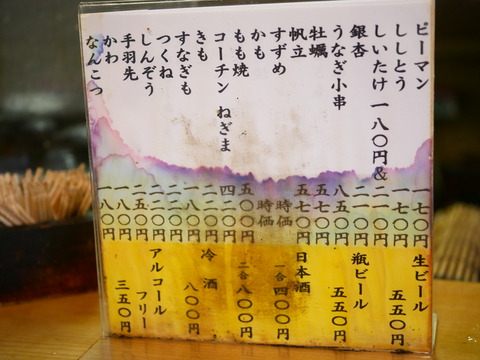 ピーマン 一七〇円
ししとう 一七〇円
しいたけ 一八〇円& 二一〇円
銀杏 二一〇円
うなぎ小串 八五〇円
牡蠣 五七〇円
帆立 五七〇円
すずめ 時価
かも 時価
もも焼 五〇〇円
コーチン ねぎま 四二〇円
きも 二一〇円
すなぎも 一八〇円
つくね 二二〇円
しんぞう 二二〇円
手羽先 二五〇円
かわ 一八〇円
なんこつ 一八〇円
生ビール
五五〇円
瓶ビール
五五〇円
日本酒
一合 四〇〇円
二合 八〇〇円
冷酒
八〇〇円
アルコール
フリー
三五〇円